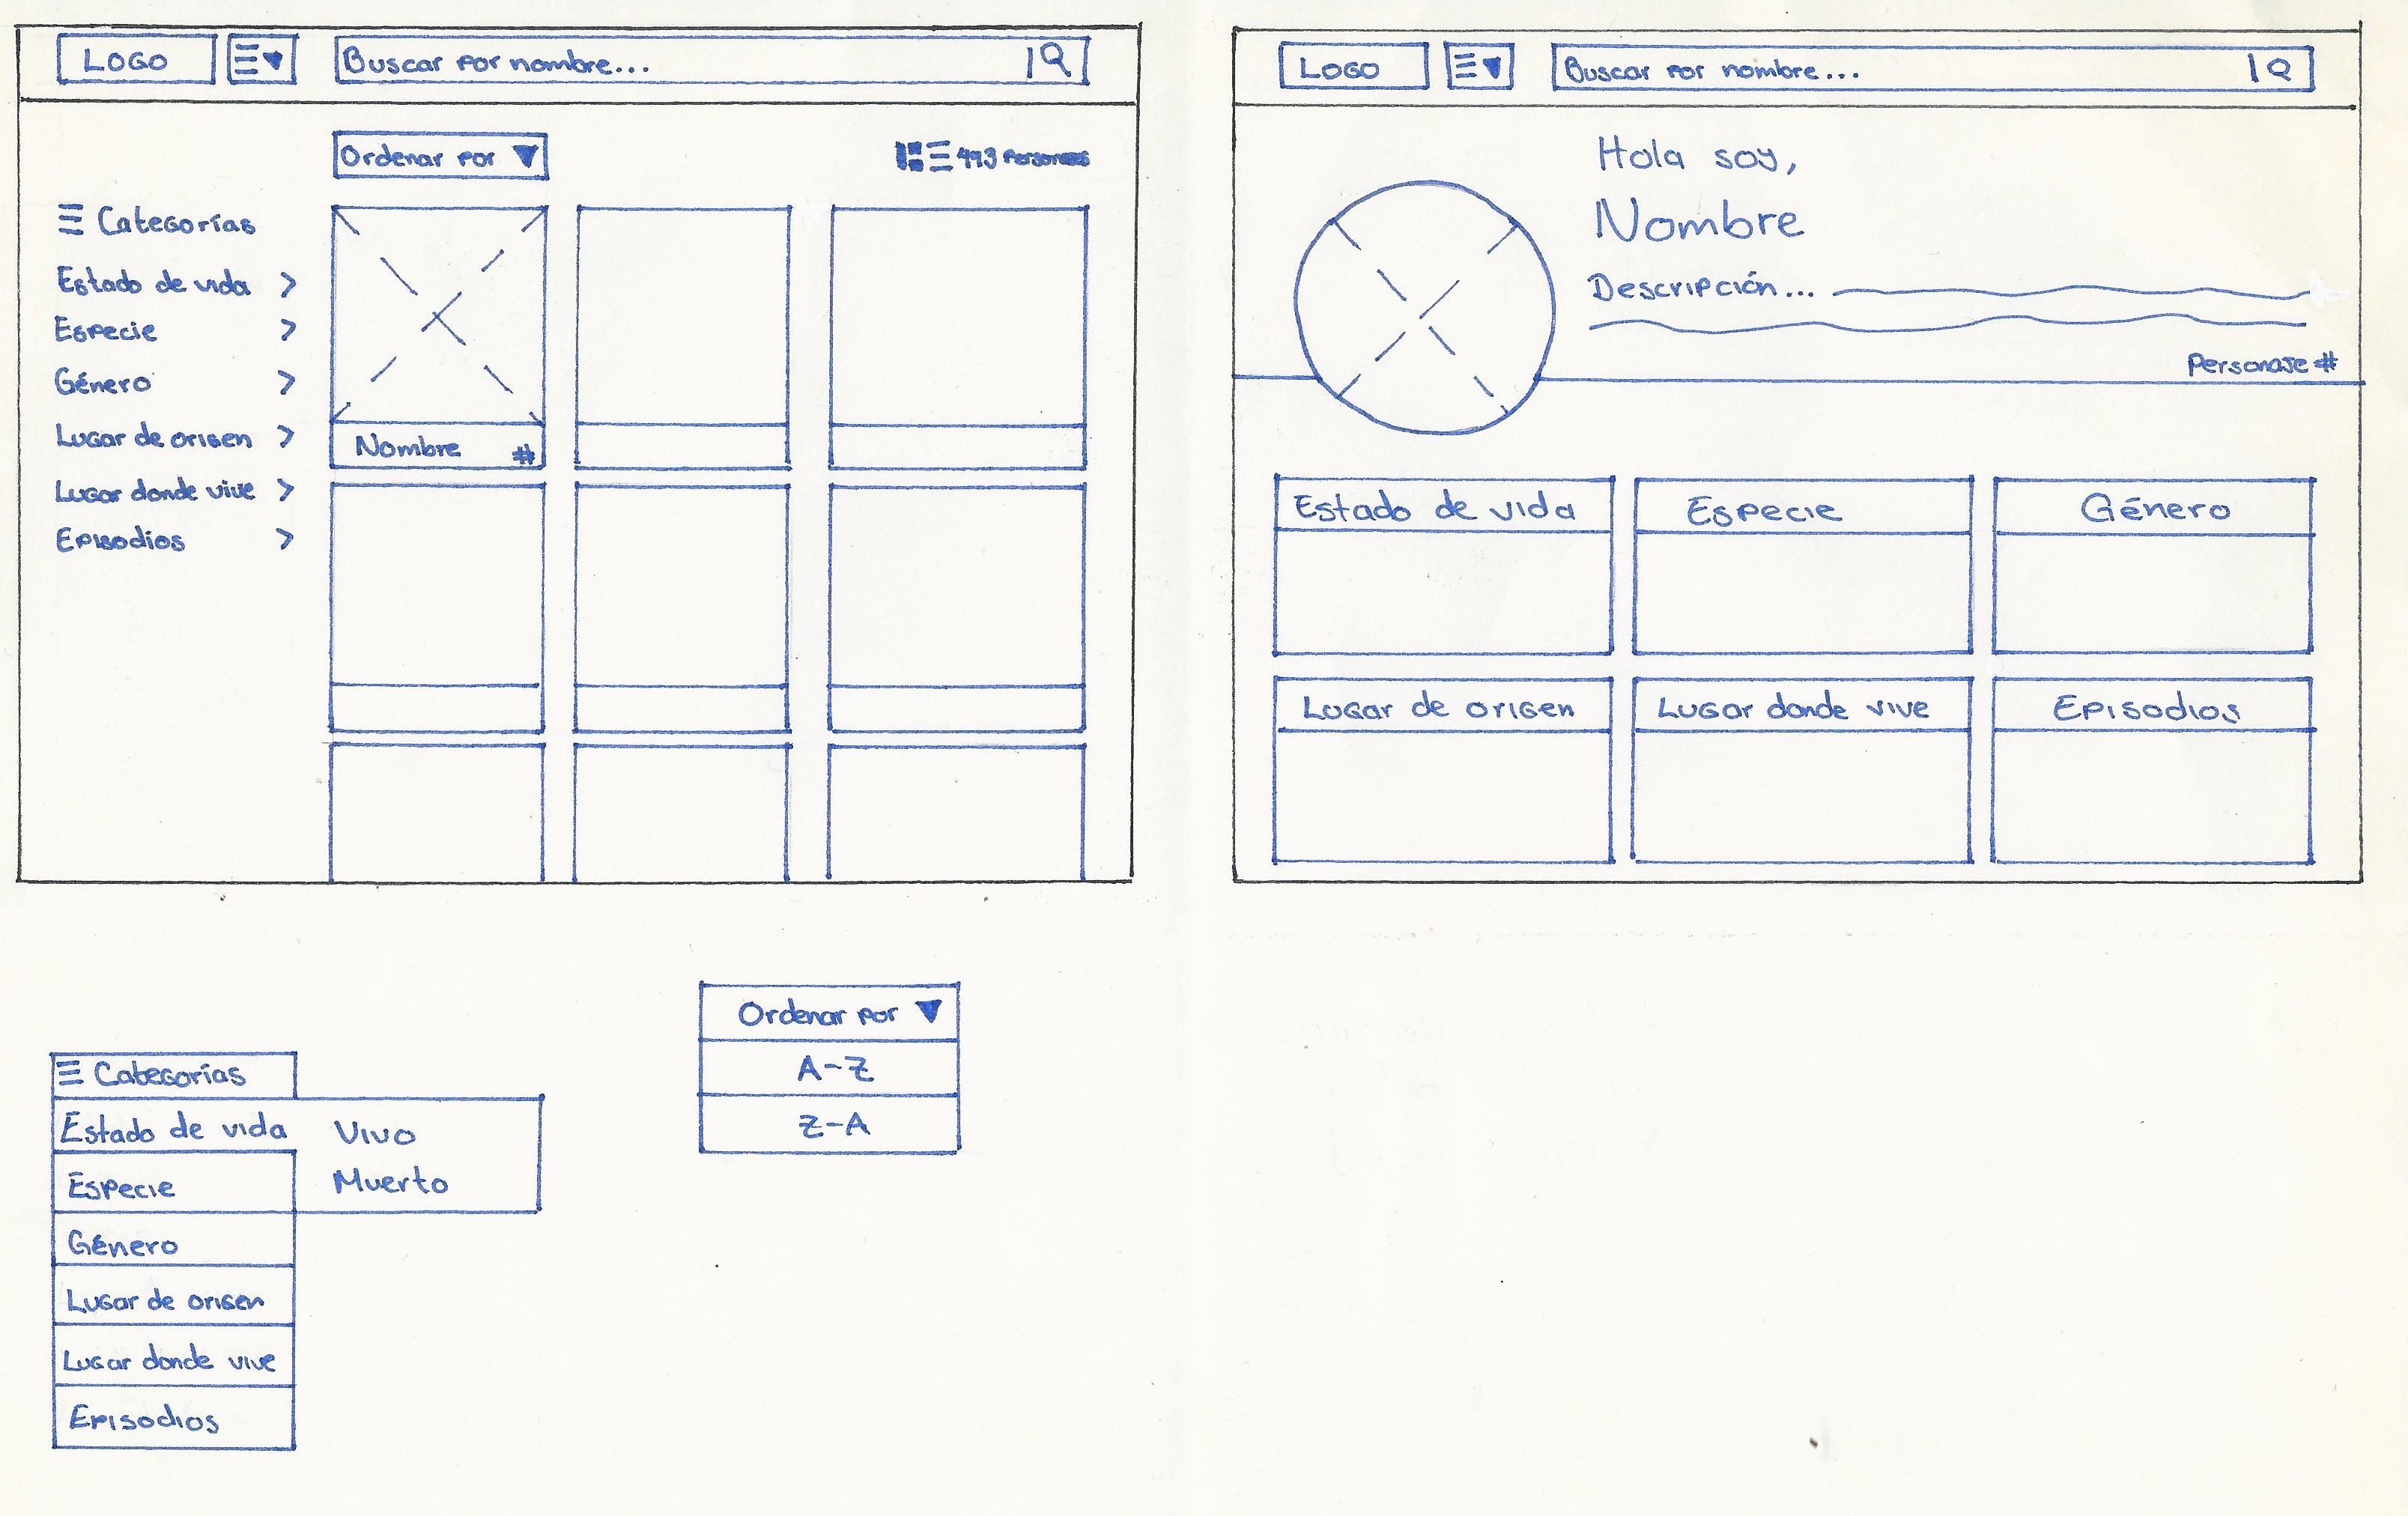 LOGO
Buscar por nombre...
Ordenar por
493 Personajes
Categorías
Estado de vida >
Especie >
Género >
Lugar de origen >
Lugar donde vive >
Episodios >
Nombre #
LOGO
Buscar por nombre...
Hola soy,
Nombre
Descripción...
Personaje #
Estado de vida
Especie
Género
Lugar de origen
Lugar donde vive
Episodios
Categorías
Estado de vida
Vivo
Especie
Muerto
Género
Lugar de origen
Lugar donde vive
Episodios
Ordenar por
A-Z
Z-A